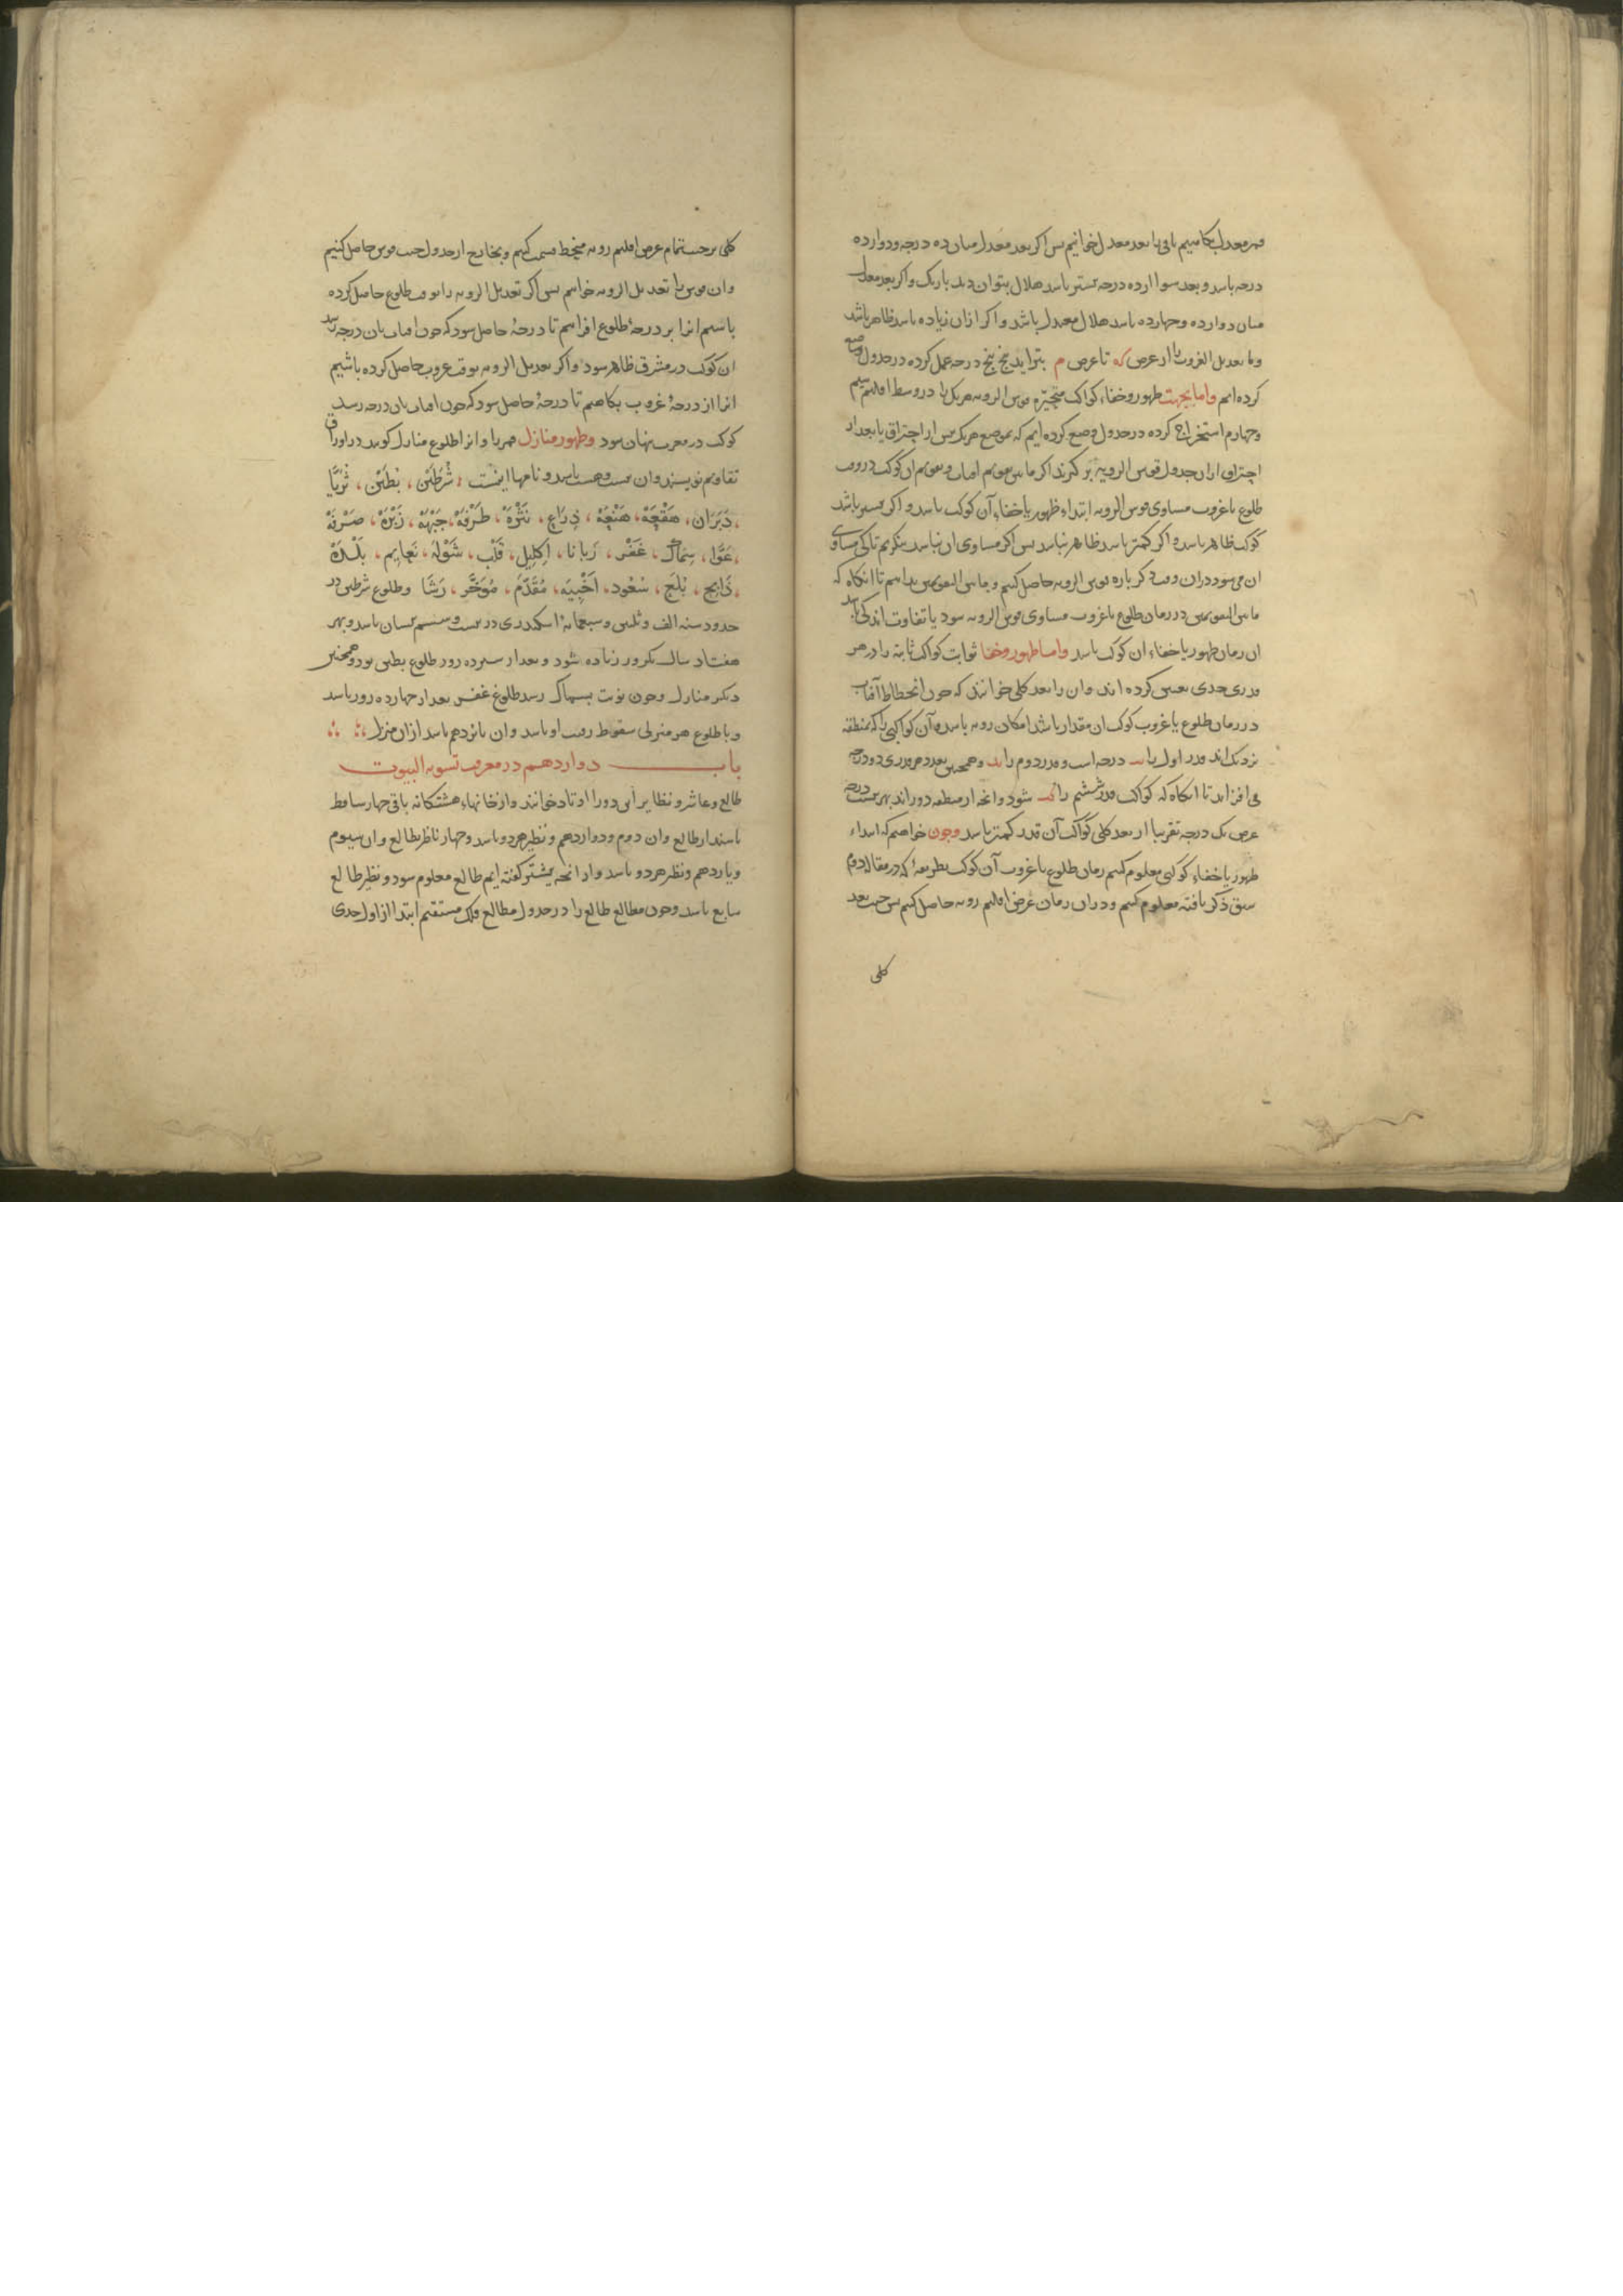 قمر معدل بکاهیم باقی را بعد معدل خوانیم پس اکر بعد معدل میان ده درجه و دوازده
درجه باشد و بعد سوا از ده درجه بیشتر باشد هلال بتوان دید باریک و اکر بعد معدل
میان دوازده و چهارده باشد هلال معتدل باشد و اکر ازان زیاده باشد ظاهر باشد
و ما تعدیل الغروب را از عرض که تا عرض م بتزاید پنج پنج درجه عمل کرده در جدول وضع
کرده ایم واما بجهت ظهور و خفاء کواکب متحیّره قوس الرویه هر یک را در وسط اقلیم سیم
وچهارم استخراج کرده در جدول وضع کرده ایم که بموضع هر یک پیش از احتراق یا بعد از
احتراق ازان جدول قوس الرویه بر کیرند اکر ما بین تقویم افتاب و تقویم ان کوکب در وقت
طلوع یا غروب مساوی قوس الرویه ابتداء ظهور یا خفاء آن کوکب باشد و اکر بیشتر باشد
کوکب ظاهر باشد و اکر کمتر باشد ظاهر نباشد پس اکر مساوی ان نباشد بنکریم تا کی مساوی
ان می شود دران وقت دکر باره قوس الرویه حاصل کنیم و ما بین التقویمین بدانیم تا انکاه که
ما بین التقویمین در زمان طلوع یا غروب مساوی قوس الرویه شود یا تفاوت اندکی باشد
ان زمان ظهور یا خفاء ان کوکب باشد واما ظهور و خفا ثوابت کواکب ثابته را در هر
قدری حدی تعیین کرده اند وان را بعد کلی خوانند که چون انحطاط آفتاب
در زمان طلوع یا غروب کوکب ان مقدار باشد امکان رویه باشد و آن کواکبی را که بمنطقه
نزدیک اند قدر اول را درجه است و قدر دوم را وهمچنین بعدد هر قدری دو درجه
می افزاید تا انکاه که کواکب قدر ششم را شود وانچه از منطقه دوراند بهر بیست درجه
عرض یک درجه تقریبا از بعد کلی کواکب آن قدر کمتر باشد وچون خواهیم که ابتداء
ظهور یا خفاء کوکبی معلوم کنیم زمان طلوع یا غروب آن کوکب بطریقهٔ که در مقاله دوم
سبق ذکر یافته معلوم کنیم و دران زمان عرض اقلیم رویه حاصل کنیم پس جیب بعد
کلی
کلی بر جیب تمام عرض اقلیم رویه منحط قسمت کنیم وبخارج از جدول جیب قوس حاصل کنیم
وان قوس را تعدیل الرویه خوانیم پس اکر تعدیل الرویه را بوقت طلوع حاصل کرده
باشیم انرا بر درجهٔ طلوع افزاییم تا درجهٔ حاصل شود که چون افتاب بان درجه رسد
ان کوکب در مشرق ظاهر شود واکر تعدیل الرویه بوقت غروب حاصل کرده باشیم
انرا از درجهٔ غروب بکاهیم تا درجهٔ حاصل شود که چون افتاب بان درجه رسد
کوکب در مغرب پنهان شود وظهور منازل قمر را وانرا طلوع منازل کویند در اوراق
تقاویم نویسند وان بیست وهشت باشد و نامها اینست ، شُرَطَیْن ، بُطَیْن ، ثُرَیَّا
، دَبَرَان ، هَقْعَهْ ، هَنْعَهْ ، ذِرَاع ، نَثْرَهْ ، طَرْفَهْ ، جَبْهَهْ ، زُبْرَهْ ، صَرْفَهْ
، عَوَّا ، سِمَاک ، غَفْر ، زَبانا ، اِکلیل ، قَلْب ، شَوْلَهْ ، نَعایِم ، بَلْدَهْ
، ذَابِح ، بُلَع ، سُعُود ، اَخْبِیَه ، مُقَدَّم ، مُوَخَّر ، رَشَا وطلوع شرطین در
حدود سنه الف وثلثین وسبعمائهٔ اسکندری در بیست وششم نیسان باشد وبهر
هفتاد سال یکروز زیاده شود وبعد از سیزده روز طلوع بطین بود وهمچنین
دیکر منازل وچون نوبت بسماک رسد طلوع غفر بعد از چهارده روز باشد
وبا طلوع هر منزلی سقوط رقیب او باشد وان پانزدهم باشد ازان منزل
باب دوازدهم در معرفت تسویه البیوت
طالع وعاشر و نظایر این دو را اوتاد خوانند واز خانهاء هشتکانه باقی چهار ساقط
باشند از طالع وان دوم ودوازدهم ونظیر هر دو باشد وچهار ناظر بطالع وان سیوم
ویازدهم ونظیر هر دو باشد واز انچه پیشتر کفته ایم طالع معلوم شود ونظیر طالع
سابع باشد وچون مطالع طالع را در جدول مطالع فلک مستقیم ابتدا از اول جدی